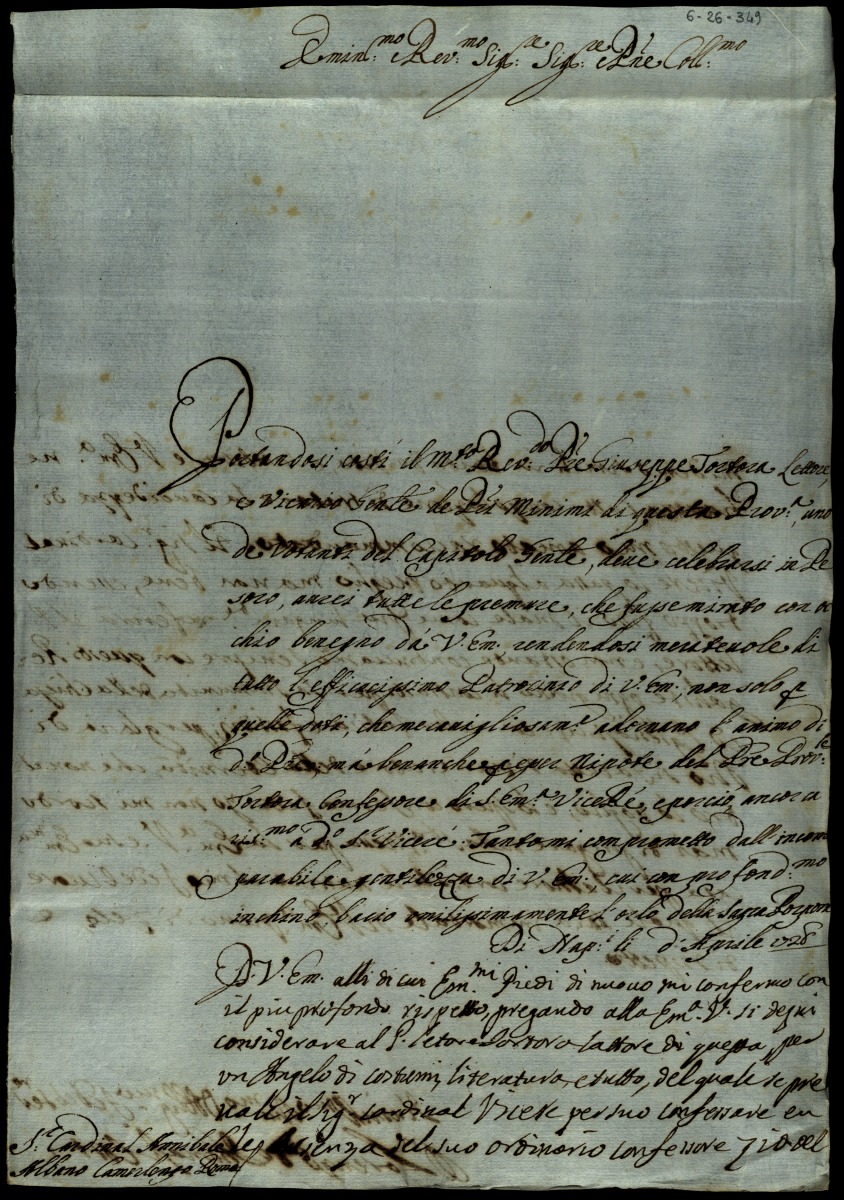 6-26-349
Emin.mo e Rev.mo Sig.re Sig.re e Pñe Coll.mo
Portandosi costi il m.to Rev.do Pře Giuseppe Tortora Lettore
e Vicario Gñle de PP. Minimi di questa Prov.a, uno
de votanti del Capitolo Gñle, deve celebrarsi in Pe
saro, aurei tutte le premure, che fusse mirato con oc
chio benegno da V. Em. rendendosi meritevole di
tutto l'efficacissimo Patrocinio di V. Em., non solo p
quelle doti, che meravigliosam.e adornano l'animo di
d.o Pře, má benanche per Nipote del Pře Prov.le
Tortora Confessore di S. Em.a ViceRé, e perció, ancora
ris.mo a d.o S.r Viceré. Tanto mi comprometto dall'incom
parabile gentilezza di V. Em., cui con profond.mo
inchino, bacio omilissimamente l'orlo della Sagra Porpora
Di Nap.i li d'Aprile 1728
D. V. Em. alli di cui Em.mi Piedi di nuovo mi confermo con
il piu profondo rispetto, pregando alla Em.a V. si degni
considerare al P. letore Tortora lattore di questa, per
un Angelo di costumi, literatura, e tutto, del quale se pre
vale il Sig.r Cardinal Vicere per suo confessare en
del suo ordinario confessore zio del
S.r Cardinal Annibale
Albano Camerlengo Roma